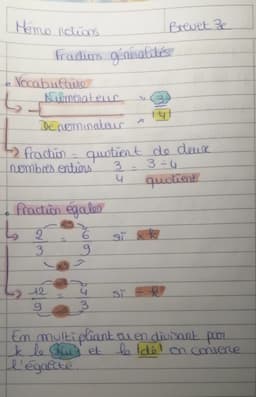 Mémo notions Brevet 3e
Fractions généralités
• Vocabulaire
Numérateur 3
Dénominateur 4
Fraction = quotient de deux
nombres entiers 3/4 = 3÷4
quotient
• Fraction égales
2/3 = 6/9 si × k
12/9 = 4/3 si ÷ k
En multipliant ou en divisant par
k le nu et le dé on conserve
l'égalité